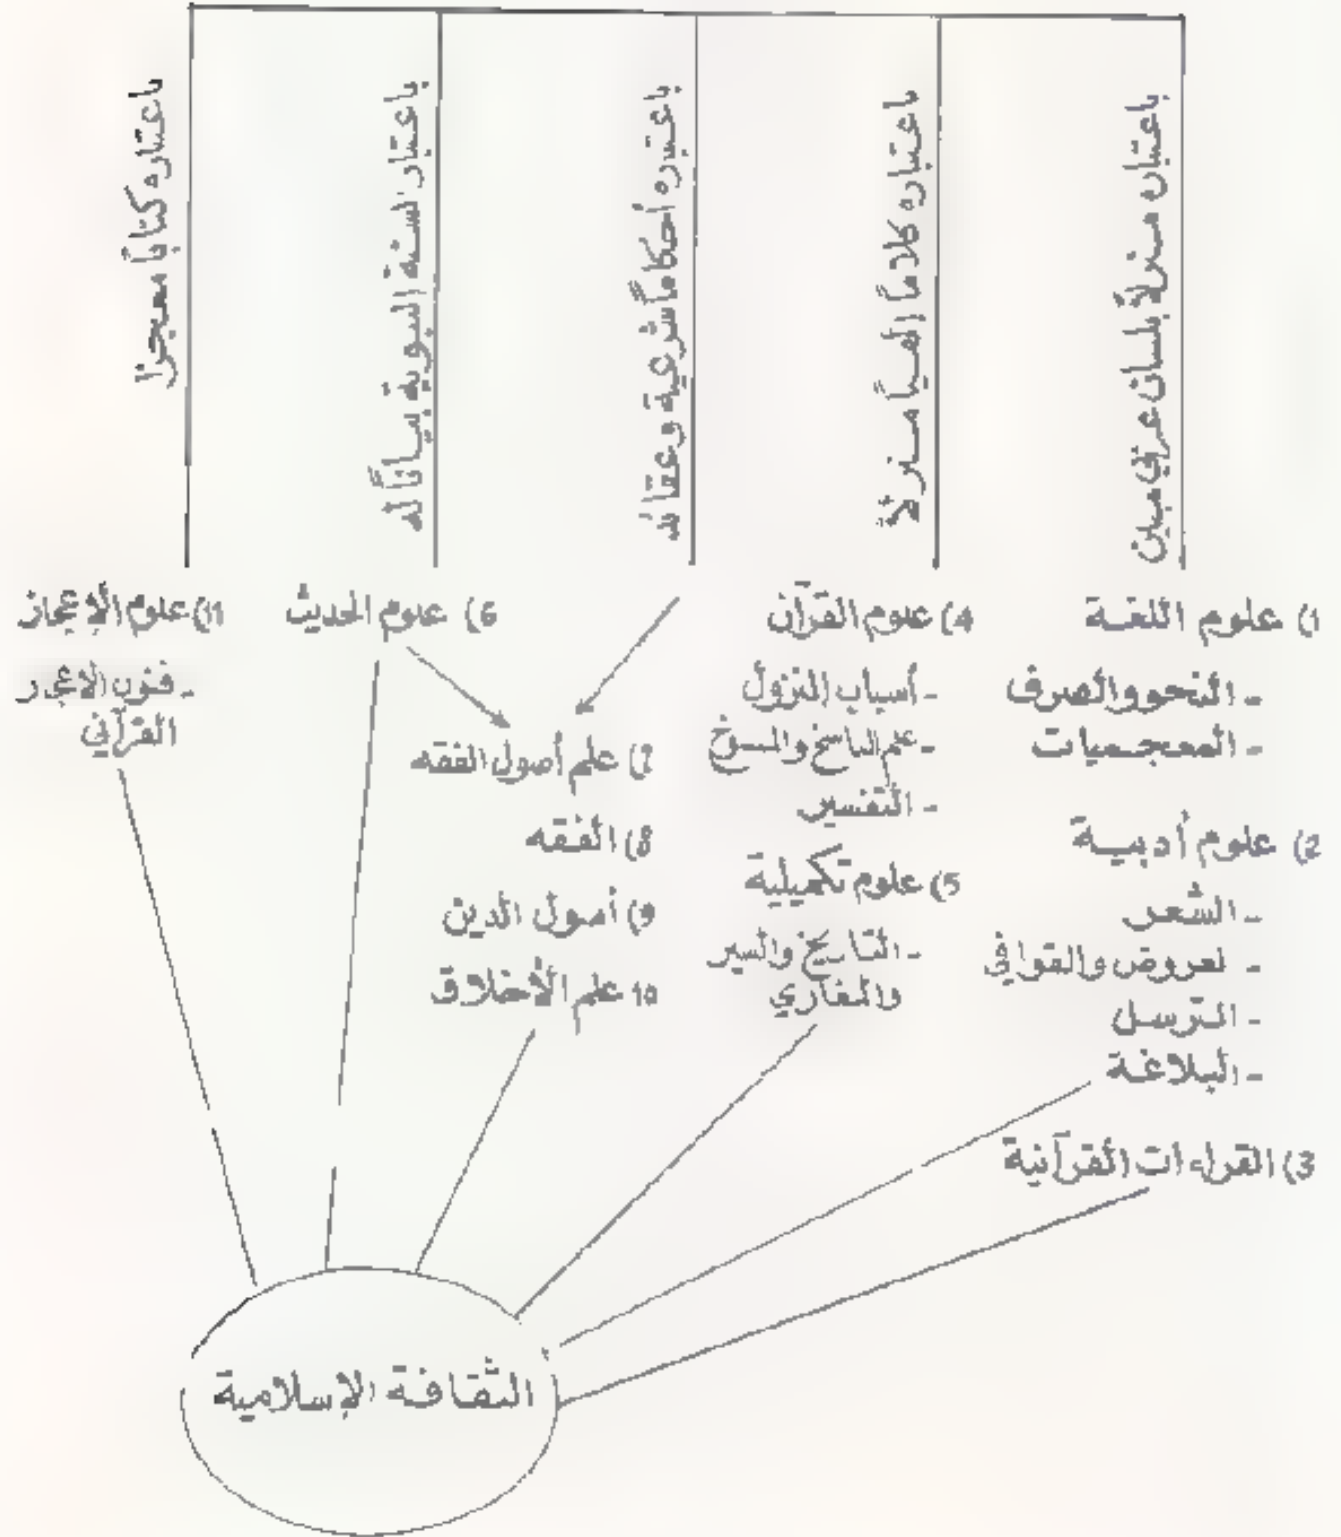 باعتباره منزلاً بلسان عربي مبين
باعتباره كلاماً إلهياً منزلاً
باعتباره أحكاماً شرعية وعقائد
باعتبار السنة النبوية بياناً له
باعتباره كتاباً معجزا
1) علوم اللغة
- النحو والصرف
- المعجميات
2) علوم أدبية
- الشعر
- لعروض والقوافي
- الترسل
- البلاغة
3) القراءات القرآنية
4) علوم القرآن
- أسباب النزول
- علم الناسخ والمنسوخ
- التفسير
5) علوم تكميلية
- التاريخ والسير
والمغازي
6) علوم الحديث
7) علم أصول الفقه
8) الفقه
9) أصول الدين
10 علم الأخلاق
11) علوم الإعجاز
- فنون الإعجاز
القرآني
الثقافة الإسلامية